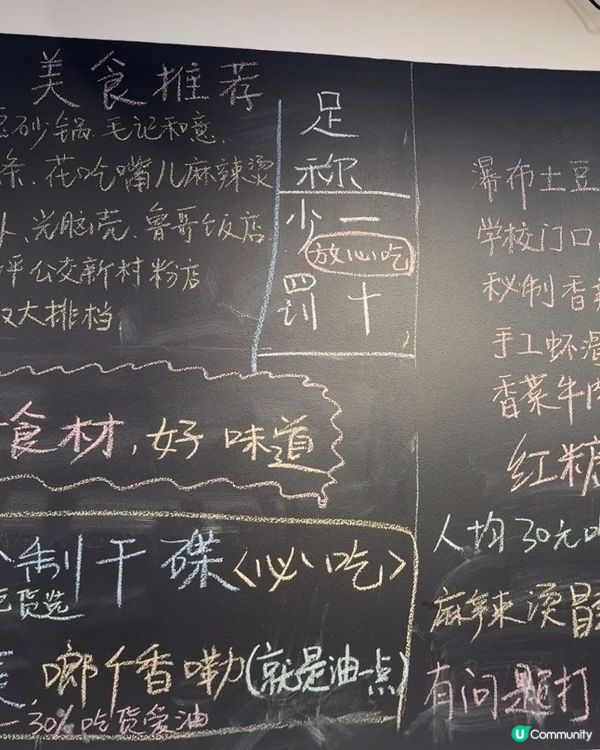 美食推荐
砂锅、毛记和意、
条、花吃嘴儿麻辣烫
人、光脑壳、鲁哥饭店
坪公交新村粉店
大排档
足
称
少一
放心吃
罚十
食材,好味道
制干碟<必吃>
吃货选
嘟个香嘞(就是油一点)
30%吃货爱油
瀑布土豆
学校门口
秘制香
手工虾滑
香菜牛肉
红糖
人均30元
麻辣烫冒
有问题打
U Community